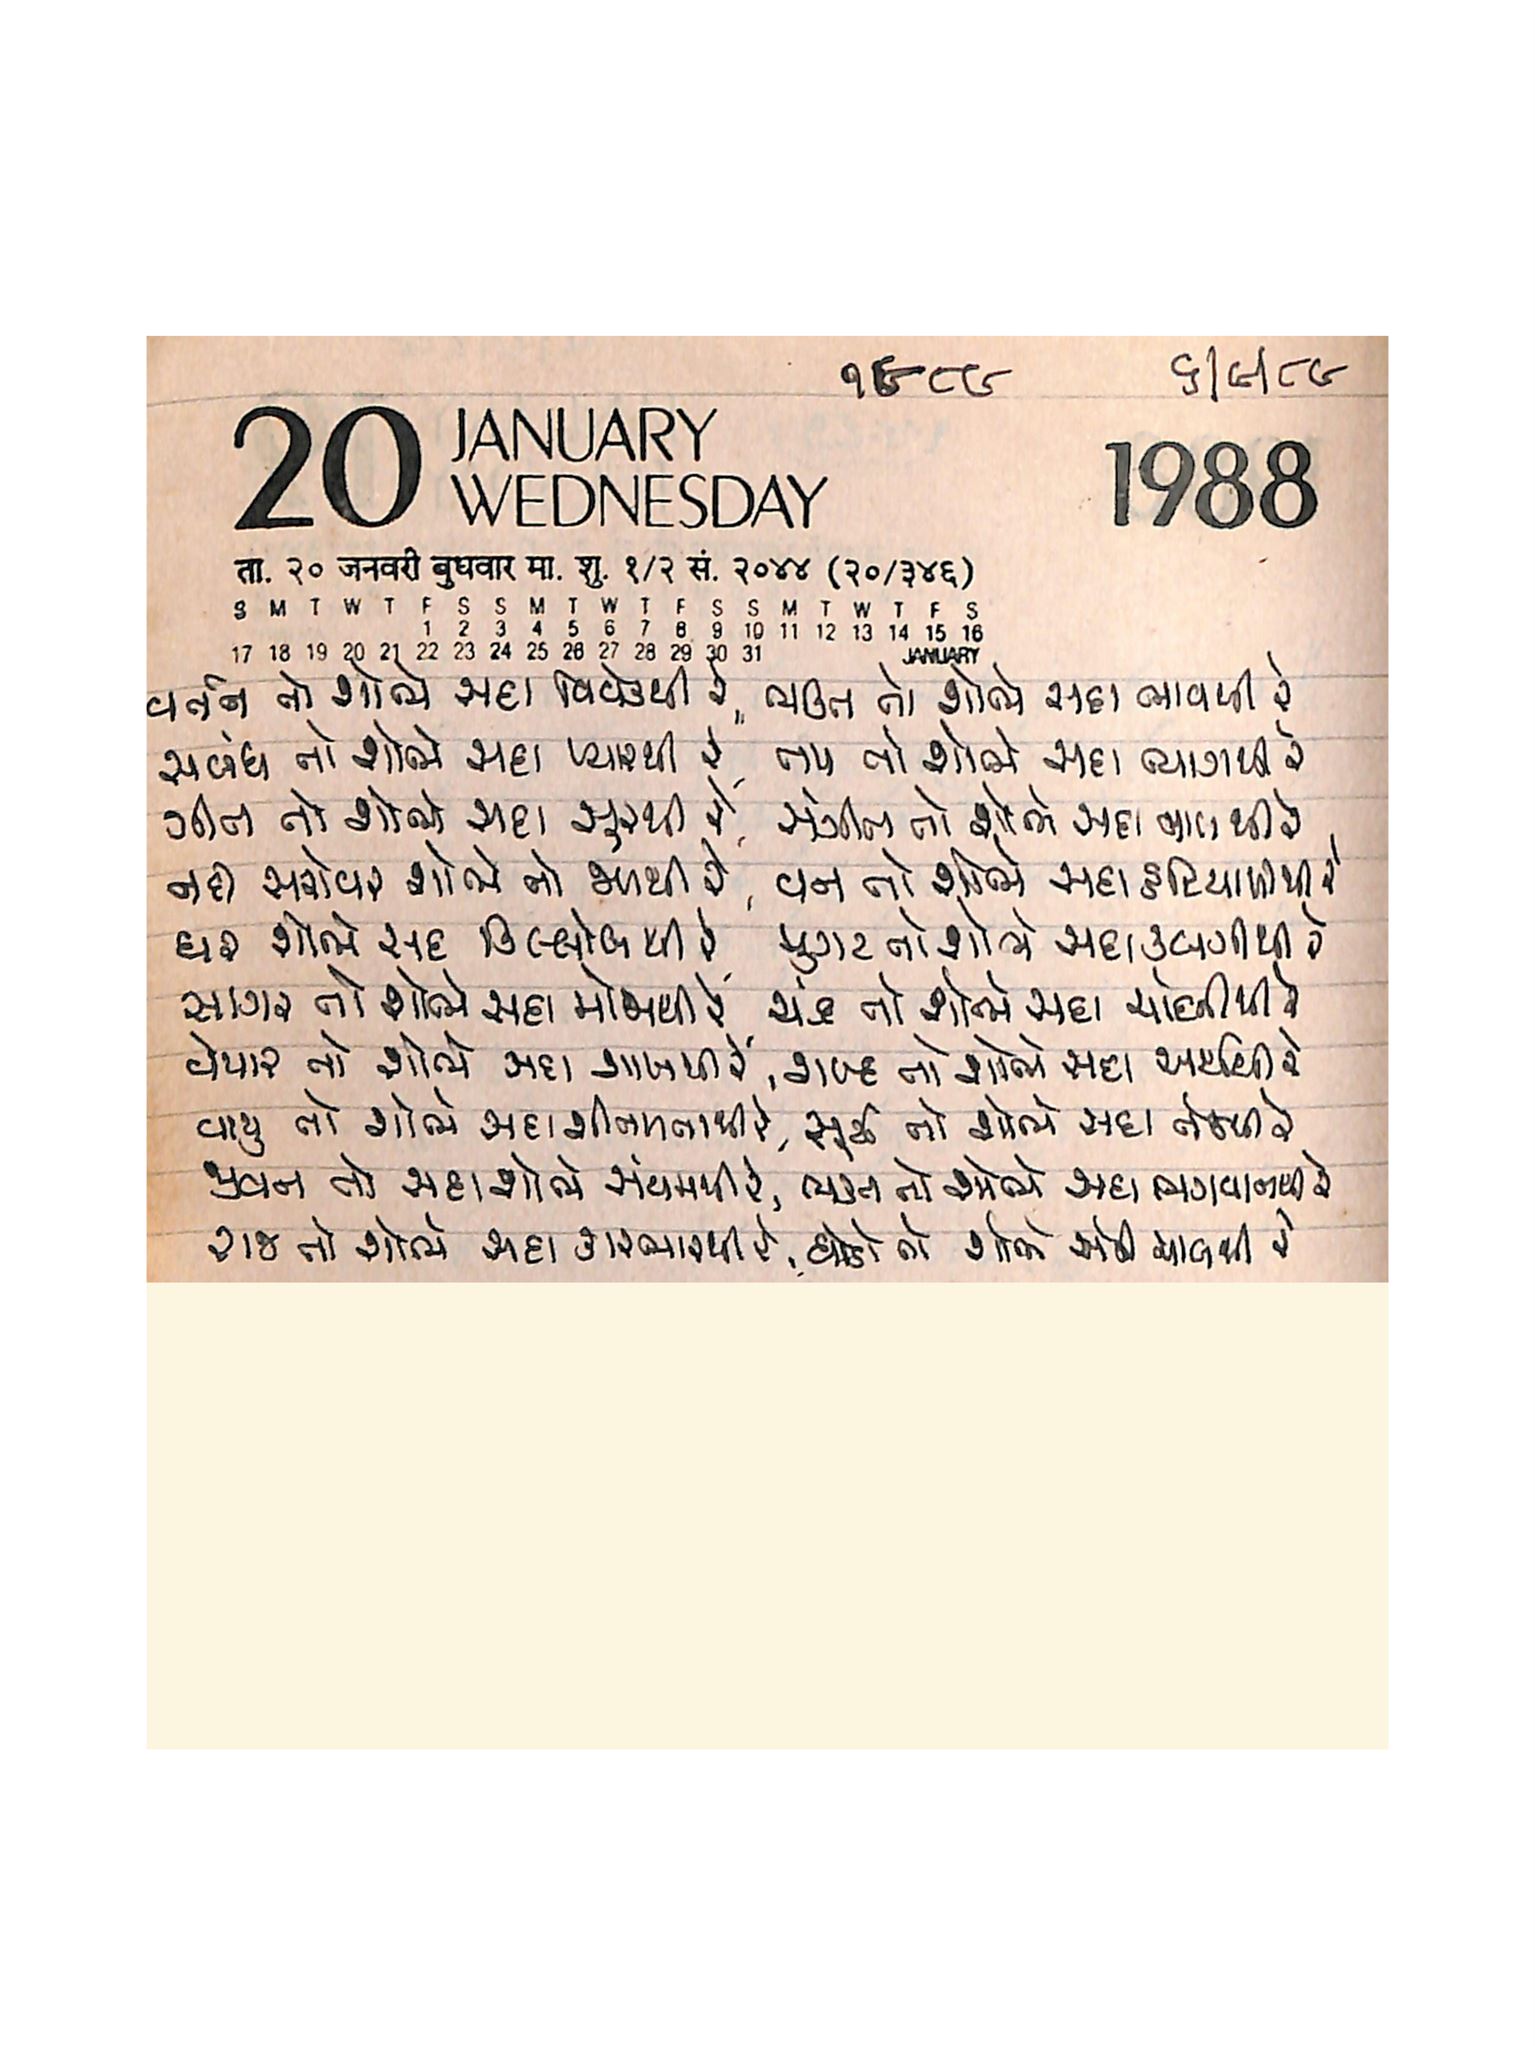 ૧૯૮૯ ૬/૯/૮૯
20 JANUARY
WEDNESDAY 1988
ता. २० जनवरी बुधवार मा. शु. १/२ सं. २०४४ (२०/३४६)
S M T W T F S S M T W T F S S M T W T F S
1 2 3 4 5 6 7 8 9 10 11 12 13 14 15 16
17 18 19 20 21 22 23 24 25 26 27 28 29 30 31 JANUARY
વર્તન તો શોભે સદા વિવેકથી રે, ભક્ત તો શોભે સદા ભાવથી રે
સબંધ તો શોભે સદા પ્યારથી રે, તપ તો શોભે સદા ત્યાગથી રે
ગીત તો શોભે સદા સુરથી રે, સંગીત તો શોભે સદા તાલથી રે
નદી સરોવર શોભે તો જળથી રે, વન તો શોભે સદા હરિયાળીથી રે
ઘર શોભે સદા કિલ્લોલથી રે, મુગટ તો શોભે સદા કલગીથી રે
સાગર તો શોભે સદા મોજાથી રે, ચંદ્ર તો શોભે સદા ચાંદનીથી રે
વેપાર તો શોભે સદા શાખથી રે, શબ્દ તો શોભે સદા અર્થથી રે
વાયુ તો શોભે સદા શીતળતાથી રે, સૂર્ય તો શોભે સદા તેજથી રે
જીવન તો સદા શોભે સંયમથી રે, ભક્ત તો શોભે સદા ભગવાનથી રે
રાજ તો શોભે સદા કારભારથી રે, ઘોડો તો શોભે એની ચાલથી રે